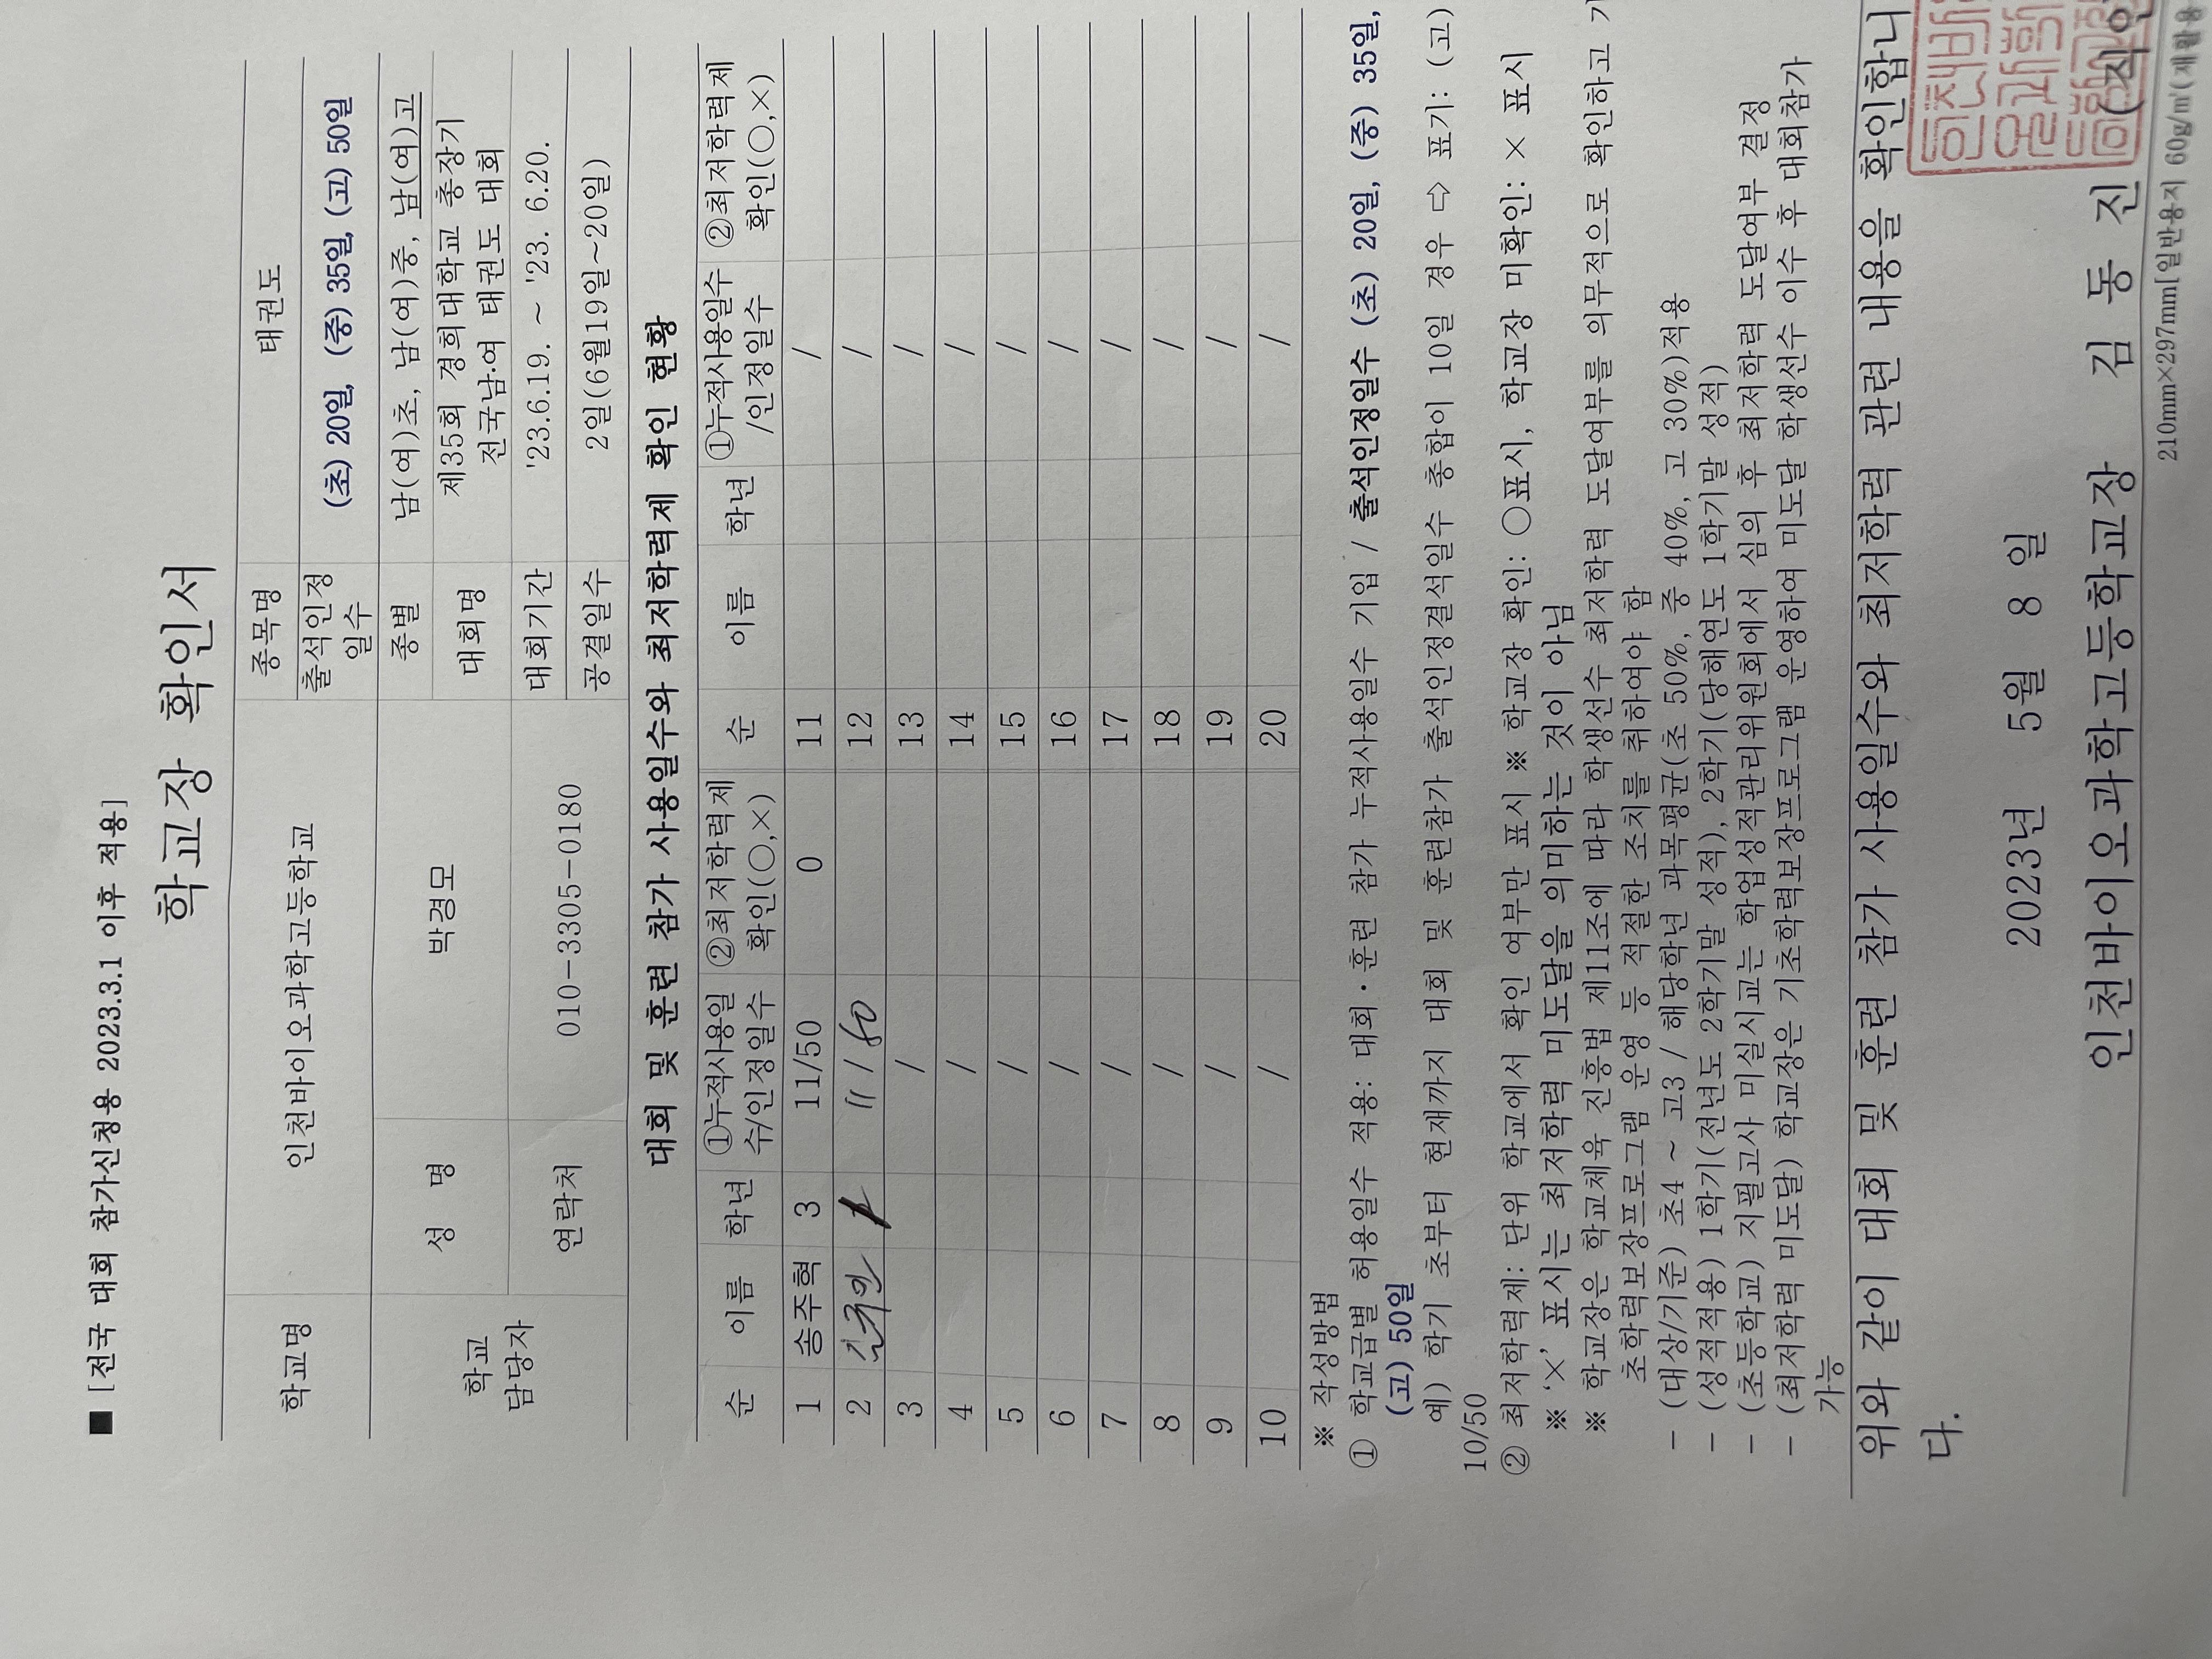 ■ [전국 대회 참가신청용 2023.3.1 이후 적용]
학교장 확인서
학교명 인천바이오과학고등학교 종목명 태권도
출석인정 일수 (초) 20일, (중) 35일, (고) 50일
학교 담당자 성 명 박경모 종별 남(여)초, 남(여)중, 남(여)고
대회명 제35회 경희대학교 총장기
전국남·여 태권도 대회
연락처 010-3305-0180 대회기간 '23.6.19. ~ '23. 6.20.
공결일수 2일(6월19일~20일)
대회 및 훈련 참가 사용일수와 최저학력제 확인 현황
순 이름 학년 ①누적사용일수/인정일수 ②최저학력제 확인(○,×) 순 이름 학년 ①누적사용일수/인정일수 ②최저학력제 확인(○,×)
1 송주혁 3 11/50 0 11 /
2 11/50 12 /
3 / 13 /
4 / 14 /
5 / 15 /
6 / 16 /
7 / 17 /
8 / 18 /
9 / 19 /
10 / 20 /
※ 작성방법
① 학교급별 허용일수 적용: 대회·훈련 참가 누적사용일수 기입 / 출석인정일수 (초) 20일, (중) 35일,
(고) 50일
예) 학기 초부터 현재까지 대회 및 훈련참가 출석인정결석일수 총합이 10일 경우 ⇨ 표기: (고)
10/50
② 최저학력제: 단위 학교에서 확인 여부만 표시 ※ 학교장 확인: ○표시, 학교장 미확인: × 표시
※ '×' 표시는 최저학력 미도달을 의미하는 것이 아님
※ 학교장은 학교체육 진흥법 제11조에 따라 학생선수 최저학력 도달여부를 의무적으로 확인하고 기
초학력보장프로그램 운영 등 적절한 조치를 취하여야 함
- (대상/기준) 초4 ~ 고3 / 해당학년 과목평균(초 50%, 중 40%, 고 30%)적용
- (성적적용) 1학기(전년도 2학기말 성적), 2학기(당해연도 1학기말 성적)
- (초등학교) 지필고사 미실시교는 학업성적관리위원회에서 심의 후 최저학력 도달여부 결정
- (최저학력 미도달) 학교장은 기초학력보장프로그램 운영하여 미도달 학생선수 이수 후 대회참가
가능
위와 같이 대회 및 훈련 참가 사용일수와 최저학력 관련 내용을 확인합니
다.
2023년 5월 8일
인천바이오과학고등학교장 김 동 진 (직인)
210mm×297mm[일반용지 60g/㎡(재활용